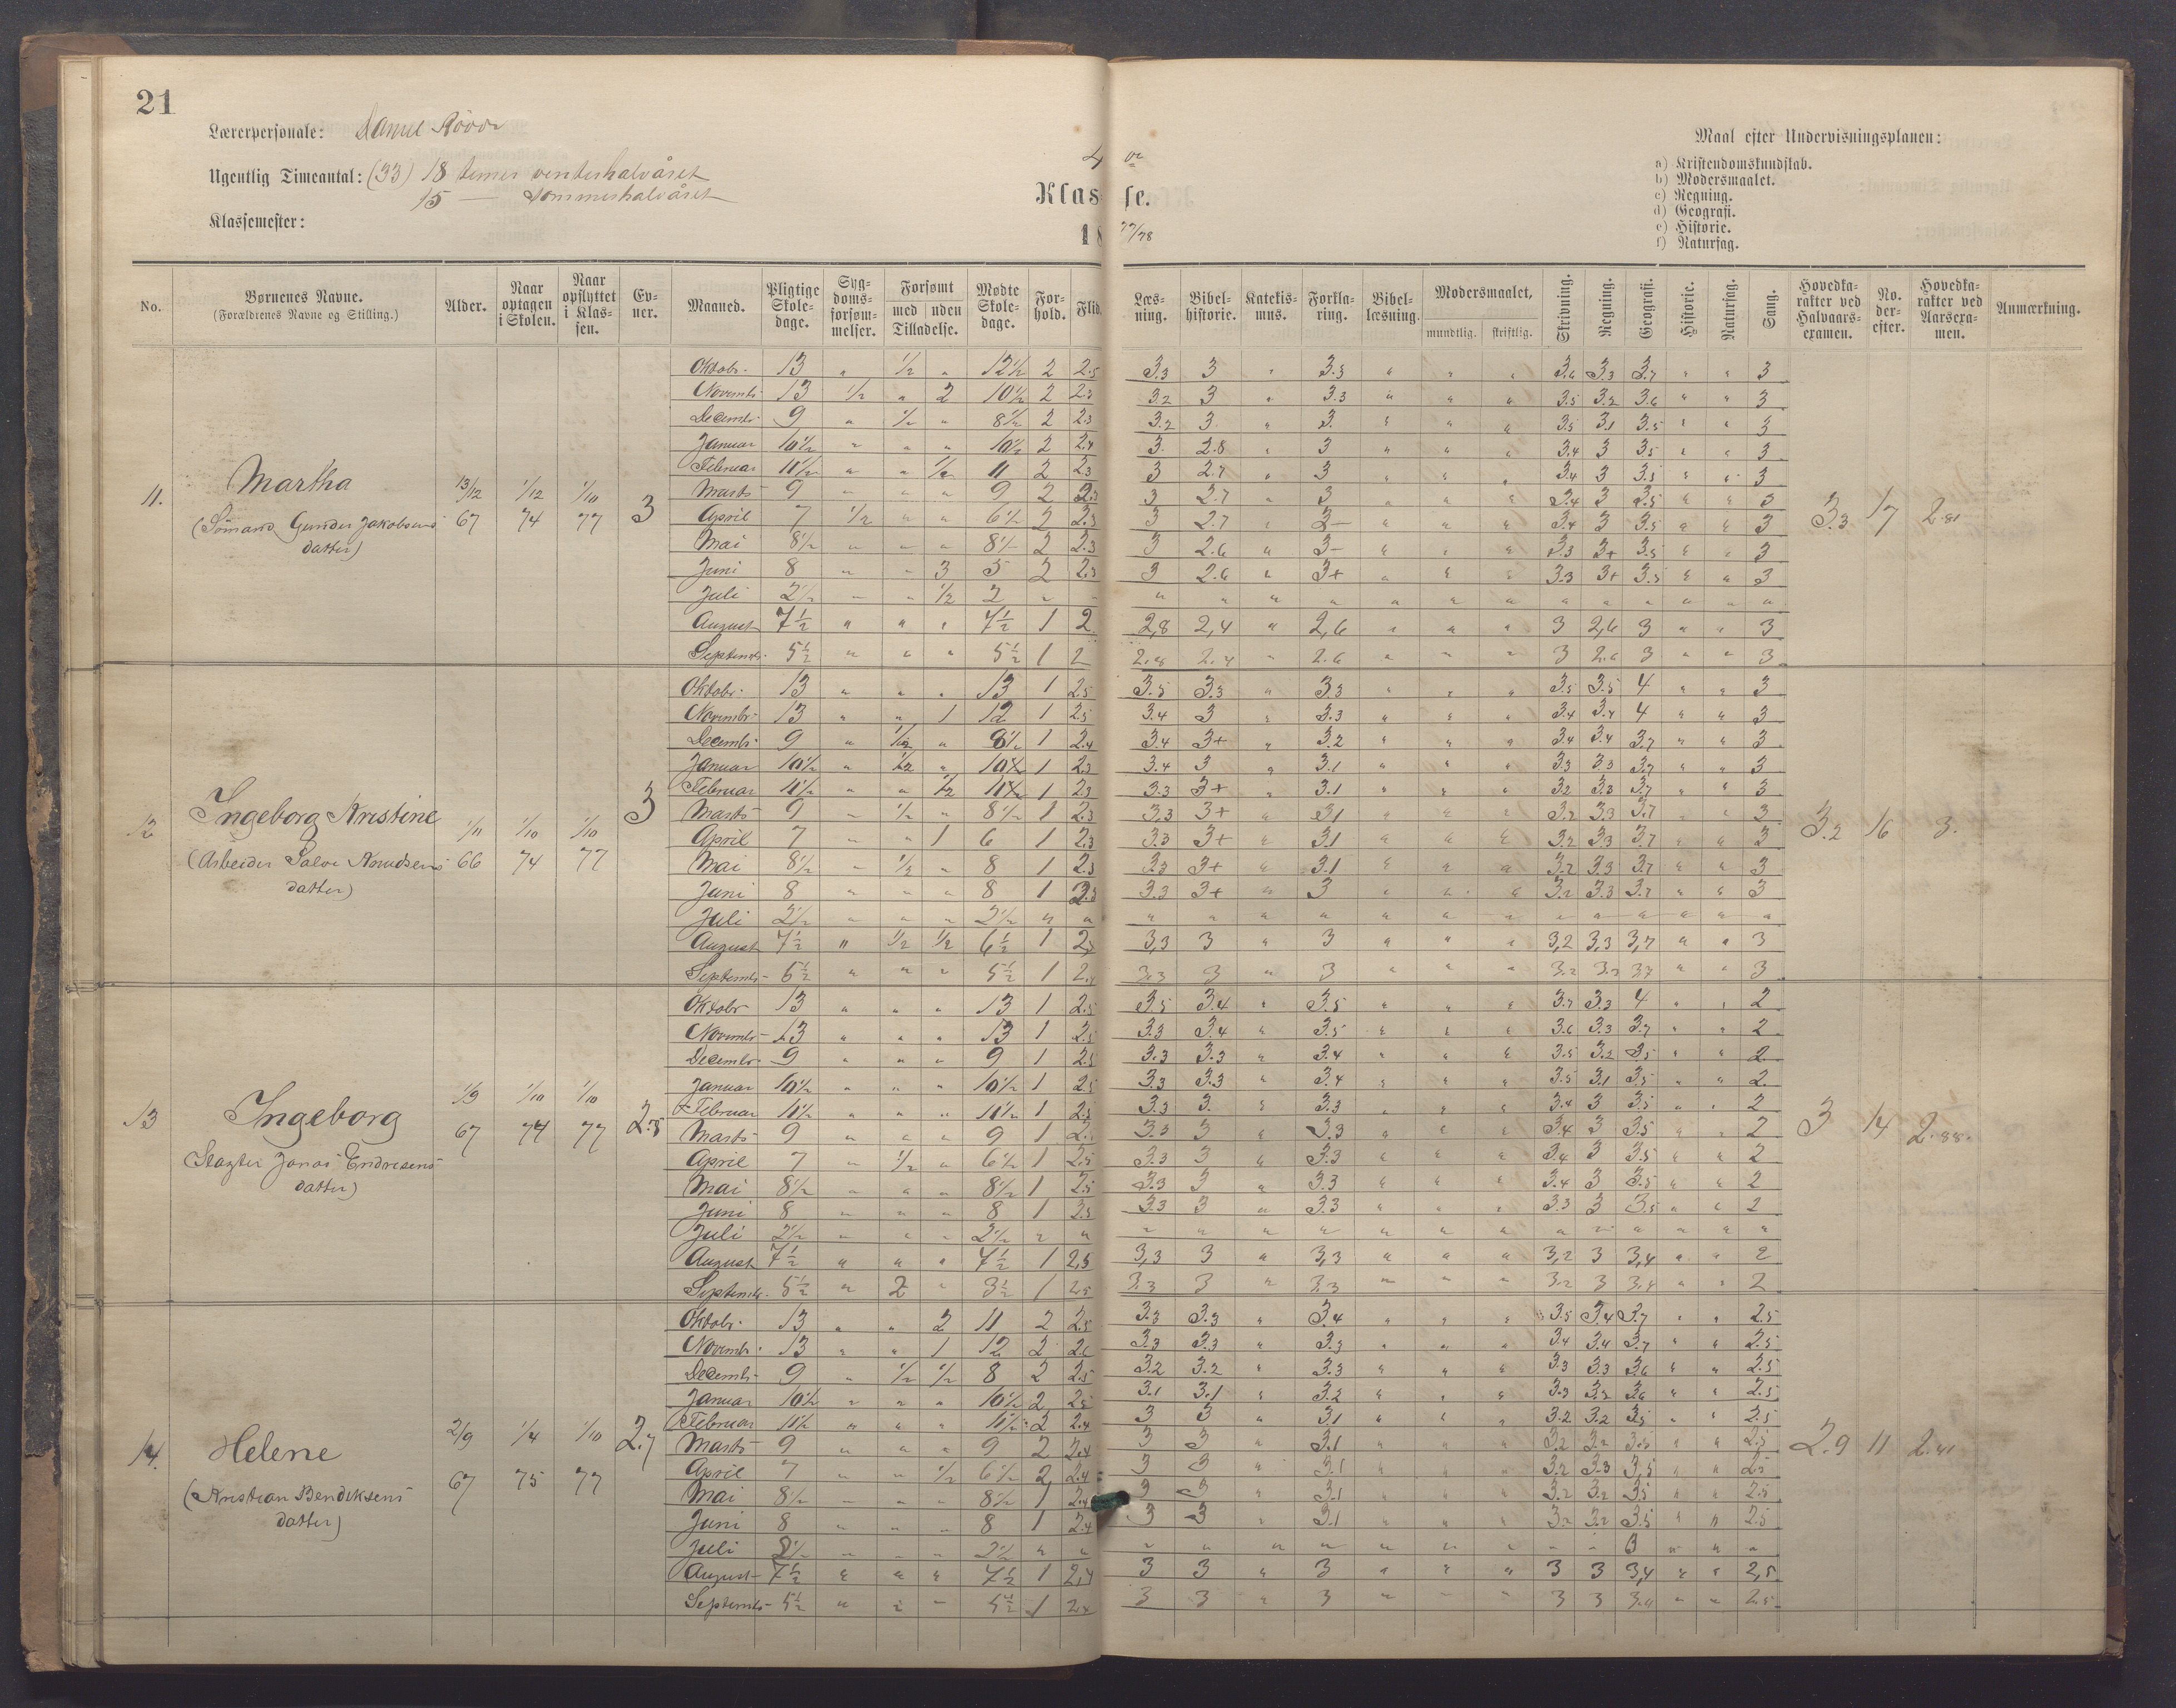 21
Lærerpersonale: Daniel
Ugentlig Timeantal: (33) 18 timer vinterhalvåret
15 — Sommerhalvåret
Klassemester:
4 de
Klasse.
18 77/78
Maal efter Undervisningsplanen:
a) Kristendomskundskab.
b) Modersmaalet.
c) Regning.
d) Geografi.
e) Historie.
f) Naturfag.
No. Børnenes Navne. (Forældrenes Navne og Stilling.) Alder. Naar optagen i Skolen. Naar opflyttet i Klassen. Evner. Maaned. Pligtige Skoledage. Sygdomsforsømmelser. Forsømt med uden Tilladelse. Mødte Skoledage. Forhold. Flid. Læsning. Bibelhistorie. Katekismus. Forklaring. Bibellæsning. Modersmaalet, mundtlig. skriftlig. Skrivning. Regning. Geografi. Historie. Naturfag. Sang. Hovedkarakter ved Halvaarsexamen. No. derefter. Hovedkarakter ved Aarsexamen. Anmærkning.
11. Martha (Sömand Gunder Jakobsens datter) 13/12 67 1/12 74 1/10 77 3 3.3 17 2.81
Oktobr. 13 " 1/2 " 12 1/2 2 2.5 3.3 3 " 3.3 " " " 3.6 3.3 3.7 " " 3
Novembr. 13 1/2 " 2 10 1/2 2 2.3 3.2 3 " 3.3 " " " 3.5 3.2 3.6 " " 3
Decembr. 9 " 1/2 " 8 1/2 2 2.3 3.2 3 " 3. " " " 3.5 3.1 3.5 " " 3
Januar 10 1/2 " " " 10 1/2 2 2.4 3 2.8 " 3 " " " 3.4 3 3.5 " " 3
Februar 11 1/2 " " 1/2 11 2 2.3 3 2.7 " 3 " " " 3.4 3 3.5 " " 3
Marts 9 " " " 9 2 2.3 3 2.7 " 3 " " " 3.4 3 3.5 " " 3
April 7 1/2 " " 6 1/2 2 2.3 3 2.7 " 3- " " " 3.4 3 3.5 " " 3
Mai 8 1/2 " " " 8 1/2 2 2.3 3 2.6 " 3- " " " 3.3 3+ 3.5 " " 3
Juni 8 " " 3 5 2 2.3 3 2.6 " 3+ " " " 3.3 3+ 3.5 " " 3
Juli 2 1/2 " " 1/2 2 " " " " " " " " " " " " " " "
August 7 1/2 " " " 7 1/2 1 2 2,8 2,4 " 2,6 " " " 3 2,6 3 " " 3
Septembr. 5 1/2 " " " 5 1/2 1 2 2.8 2.4 " 2.6 " " " 3 2.6 3 " " 3
12 Ingeborg Kristine (Arbeider Salve Knudsens datter) 1/11 66 1/10 74 1/10 77 3 3.2 16 3.
Oktobr. 13 " " " 13 1 2.5 3.5 3.3 " 3.3 " " " 3.5 3.5 4 " " 3
Novembr. 13 " " 1 12 1 2.5 3.4 3 " 3.3 " " " 3.4 3.4 4 " " 3
Decembr. 9 " 1/2 " 8 1/2 1 2.4 3.4 3+ " 3.2 " " " 3.4 3.4 3.7 " " 3
Januar 10 1/2 " 1/2 " 10 1 2.3 3.4 3 " 3.1 " " " 3.3 3.3 3.7 " " 3
Februar 11 1/2 " " 1/2 11 1 2.3 3.3 3+ " 3.1 " " " 3.2 3.3 3.7 " " 3
Marts 9 " 1/2 " 8 1/2 1 2.3 3.3 3+ " 3.1 " " " 3.2 3.3 3.7 " " 3
April 7 " " 1 6 1 2.3 3.3 3+ " 3.1 " " " 3.2 3.3 3.7 " " 3
Mai 8 1/2 " 1/2 " 8 1 2.3 3.3 3+ " 3.1 " " " 3.2 3.3 3.7 " " 3
Juni 8 " " " 8 1 2.3 3.3 3+ " 3 " " " 3.2 3.3 3.7 " " 3
Juli 2 1/2 " " " 2 1/2 " " " " " " " " " " " " " " "
August 7 1/2 " 1/2 1/2 6 1/2 1 3,3 3 " 3 " " " 3,2 3,3 3,7 " " 3
Septembr. 5 1/2 " " " 5 1/2 1 3.3 3 " 3 " " " 3.2 3.3 3.7 " " 3
13 Ingeborg (Slagter Jonas Endresens datter) 1/9 67 1/10 74 1/10 77 2.8 3 14 2.88.
Oktobr 13 " " " 13 1 2.5 3.5 3.4 " 3.5 " " " 3.7 3.3 4 " " 2
Novembr. 13 " " " 13 1 2.5 3.3 3.4 " 3.5 " " " 3.6 3.3 3.7 " " 2
Decembr. 9 " " " 9 1 2.5 3.3 3.3 " 3.4 " " " 3.5 3.2 3.5 " " 2
Januar 10 1/2 " " " 10 1/2 1 2.5 3.3 3.3 " 3.4 " " " 3.5 3.1 3.5 " " 2
Februar 11 1/2 " " " 11 1/2 1 2.5 3.3 3. " 3.3 " " " 3.4 3 3.5 " " 2
Marts 9 " " " 9 1 3.3 3 " 3.3 " " " 3.4 3 3.5 " " 2
April 7 " 1/2 " 6 1/2 1 2.5 3.3 3 " 3.3 " " " 3.4 3 3.5 " " 2
Mai 8 1/2 " " " 8 1/2 1 2.5 3.3 3 " 3.3 " " " 3.4 3 3.5 " " 2
Juni 8 " " " 8 1 2.5 3.3 3 " 3.3 " " " 3.3 3 3.5 " " 2
Juli 2 1/2 " " " 2 1/2 " " " " " " " " " " " " " " "
August 7 1/2 " " " 7 1/2 1 2,5 3,3 3 " 3,3 " " " 3,2 3 3,4 " " 2
Septembr. 5 1/2 " 2 " 3 1/2 1 2.5 3.3 3 " 3.3 " " " 3.2 3 3.4 " " 2
14. Helene (Kristian Bendiksens datter) 2/9 67 1/4 75 1/10 77 2.7 2.9 11 2.41
Oktobr. 13 " " 2 11 2 2.5 3.3 3.3 " 3.4 " " " 3.5 3.4 3.7 " " 2.5
Novembr. 13 " " 1 12 2 2.6 3.3 3.3 " 3.3 " " " 3.4 3.4 3.7 " " 2.5
Decembr. 9 " 1/2 1/2 8 2 2.5 3.2 3.2 " 3.3 " " " 3.3 3.3 3.6 " " 2.5
Januar 10 1/2 " " " 10 1/2 2 2.5 3.1 3.1 " 3.2 " " " 3.3 3.2 3.6 " " 2.5
Februar 11 1/2 " " " 11 1/2 2 2.4 3 3 " 3.1 " " " 3.2 3.2 3.5 " " 2.5
Marts 9 " " " 9 2 2.4 3 3 " 3.1 " " " 3.2 3.2 3.5 " " 2.5
April 7 " " 1/2 6 1/2 2 2.4 3 3 " 3.1 " " " 3.2 3.3 3.5 " " 2.5
Mai 8 1/2 " " " 8 1/2 1 2.4 3 3 " 3.1 " " " 3.2 3.2 3.5 " " 2.5
Juni 8 " " " 8 1 2.4 3 3 " 3.1 " " " 3.2 3.2 3.5 " " 2.5
Juli 2 1/2 " " " 2 1/2 " " " " " " " " " " " " " "
August 7 1/2 " " " 7 1/2 1 2,4 3 3 " 3 " " " 3 3 3,4 " " 2,5
Septembr. 5 1/2 " " " 5 1/2 1 2.4 3 3 " 3 " " " 3 3 3.4 " " 2.5